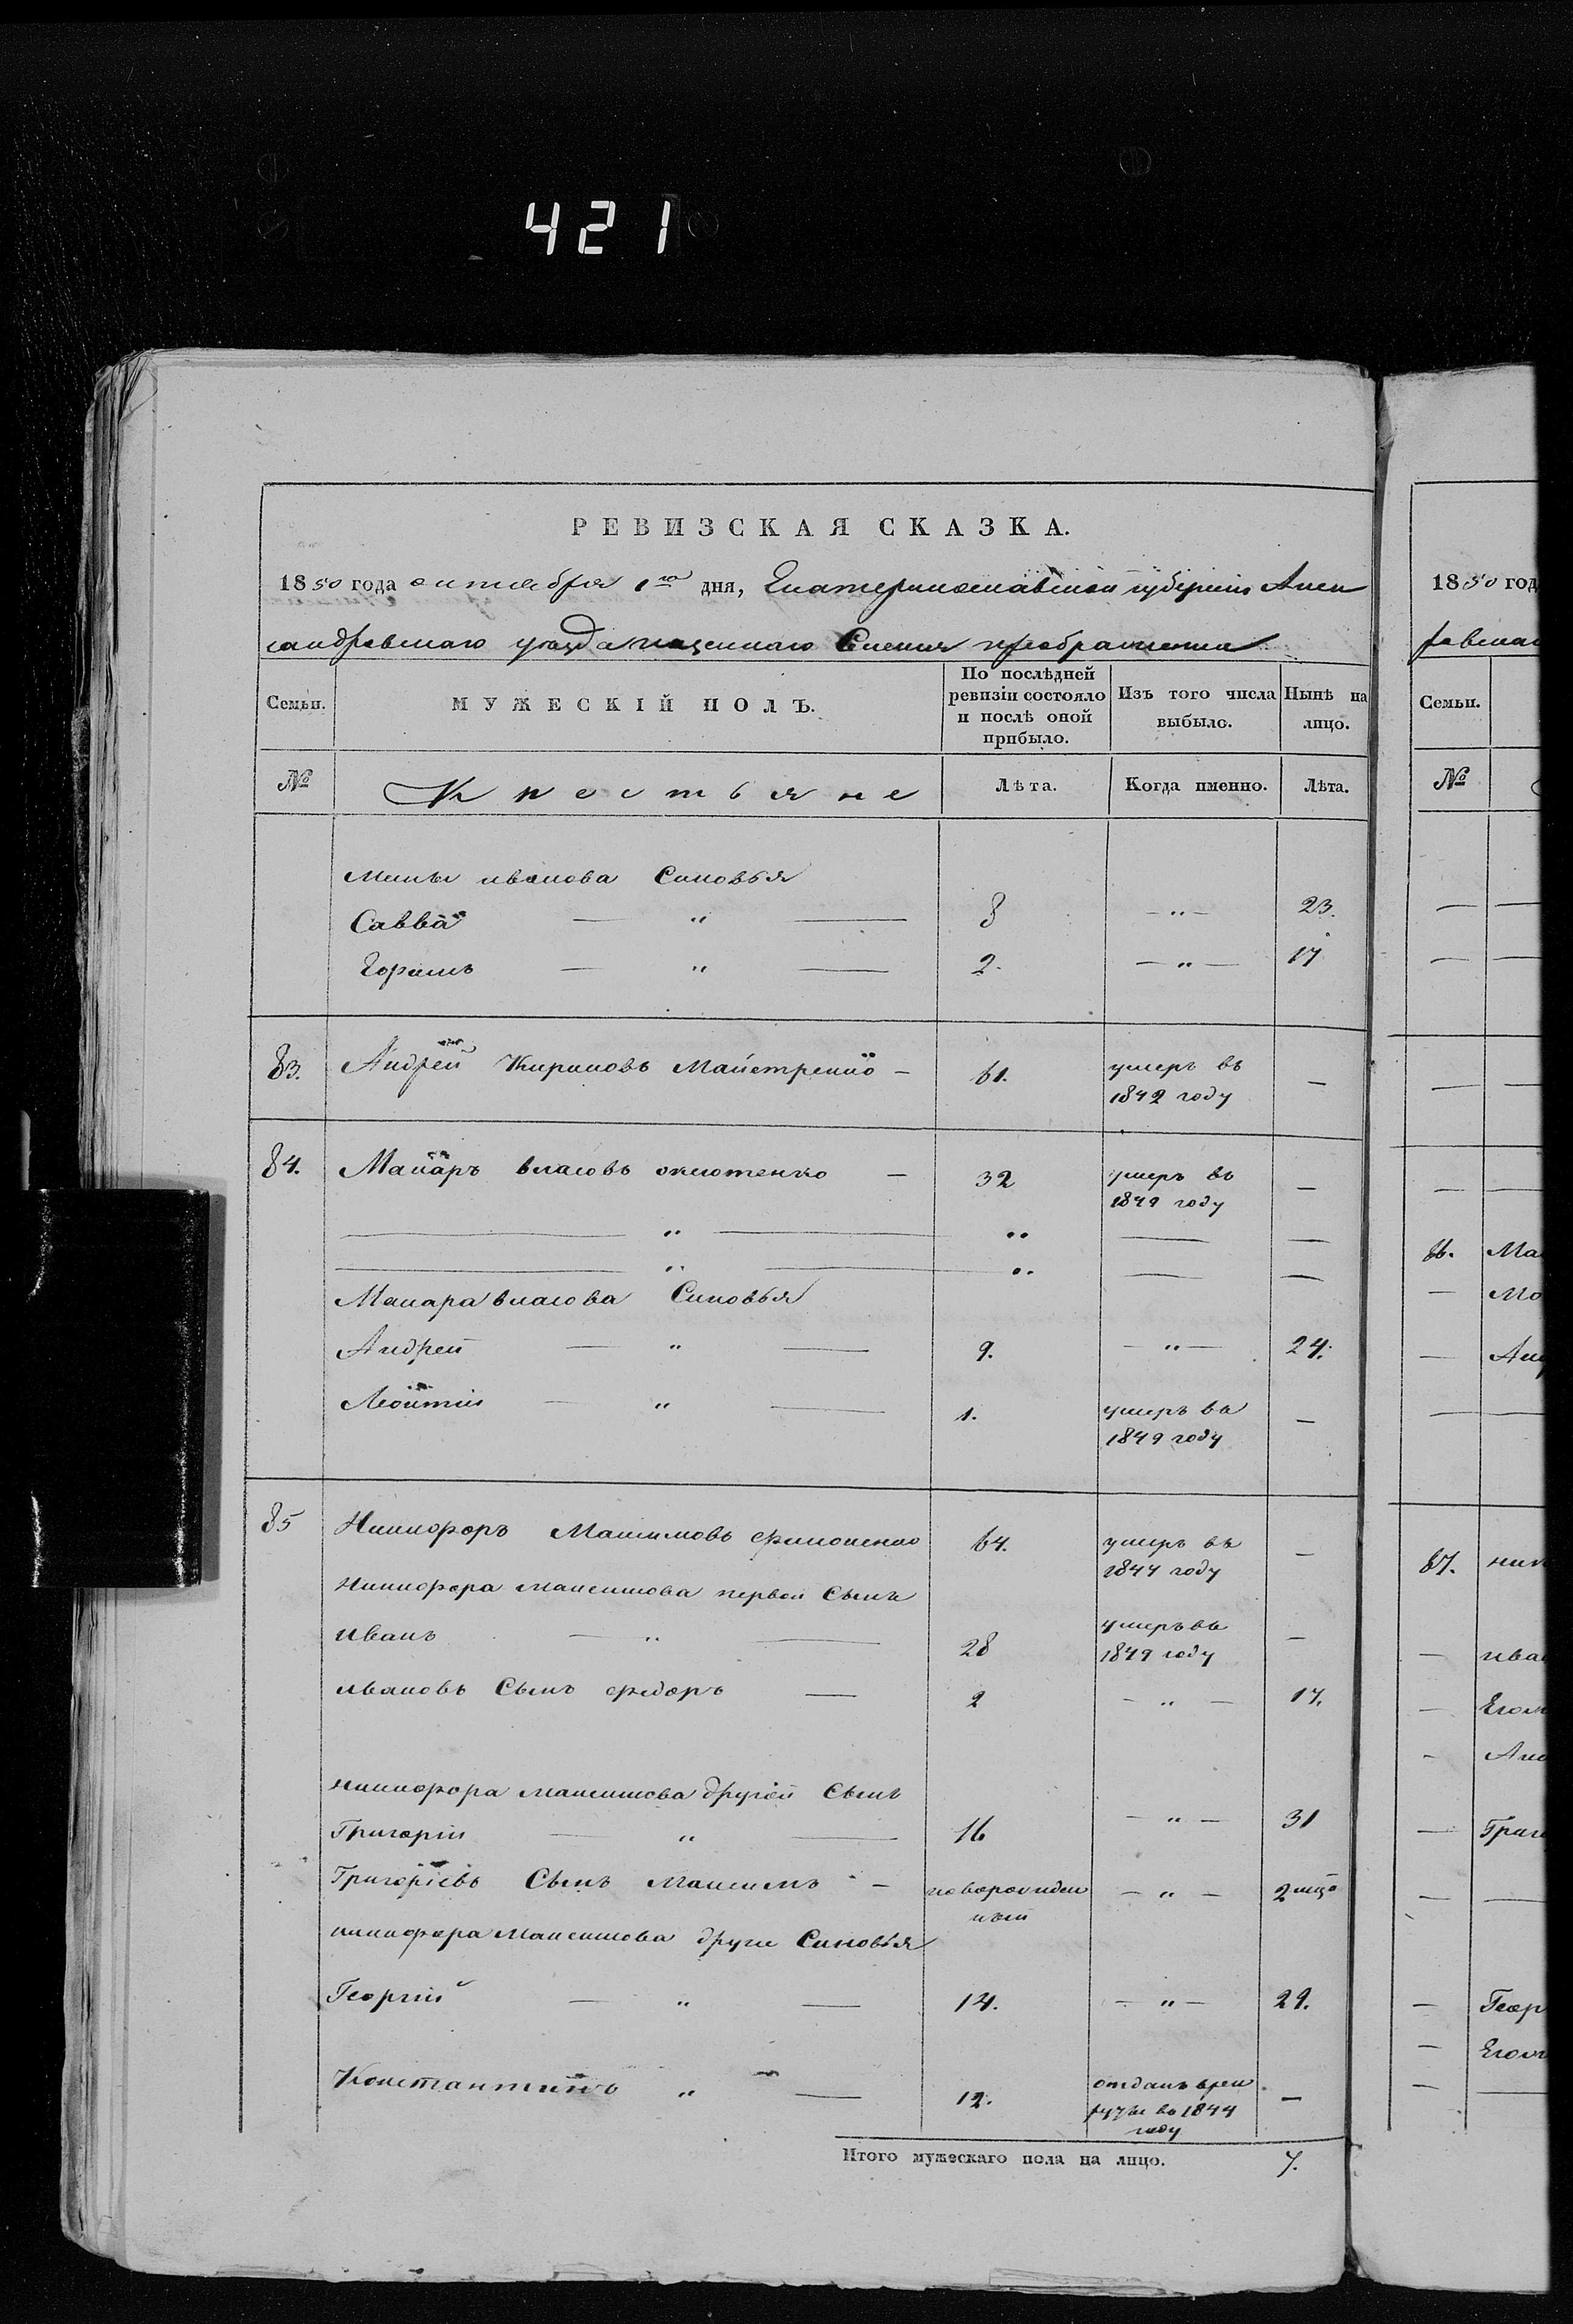 421
РЕВИЗСКАЯ СКАЗКА.
1850 года октября 1го дня, Екатеринославской губерніи Алек
сандровскаго уезда казеннаго Сленія преображенки
Семьи.
МУЖЕСКІЙ ПОЛЪ.
По послѣдней
ревизіи состояло
и послѣ оной
прибыло.
Изъ того числа
выбыло.
Нынѣ на
лицо.
№
Крестьяне
Лѣта.
Когда именно.
Лѣта.
иванова Синовья
Савва — " — 8 — " — 23.
— " — 2. — " — 17
83. Андрей Кириловъ Майстренко — 61. умеръ въ —
1842 году
84. Макаръ власовъ — 32 умеръ въ —
1849 году
— " — " — —
— " — " — —
Макара власова Синовья
Андрей — " — 9. — " — 24.
Леонтій — " — 1. умеръ въ —
1849 году
85 Никифоръ Максимовъ филоненко 64. умеръ въ —
1844 году
Никифора Максимова первой Сынъ
иванъ — " — 28 умеръ въ —
1849 году
ивановъ Сынъ федоръ — 2 — " — 17.
никифора максимова другой Сынъ
Григорій — " — 16 — " — 31
Григоріевъ Сынъ Максимъ — новорожден — " — 2
ный
никифора Максимова други Синовья
Георгій — " — 14. — " — 29.
Константинъ " — 12. отданъ врек —
руты въ 1844
году
Итого мужескаго пола на лицо. 7.
1850 год
Семьи.
№
86. Ма
Мо
Ан
87. ник
ива
Григ
Геор